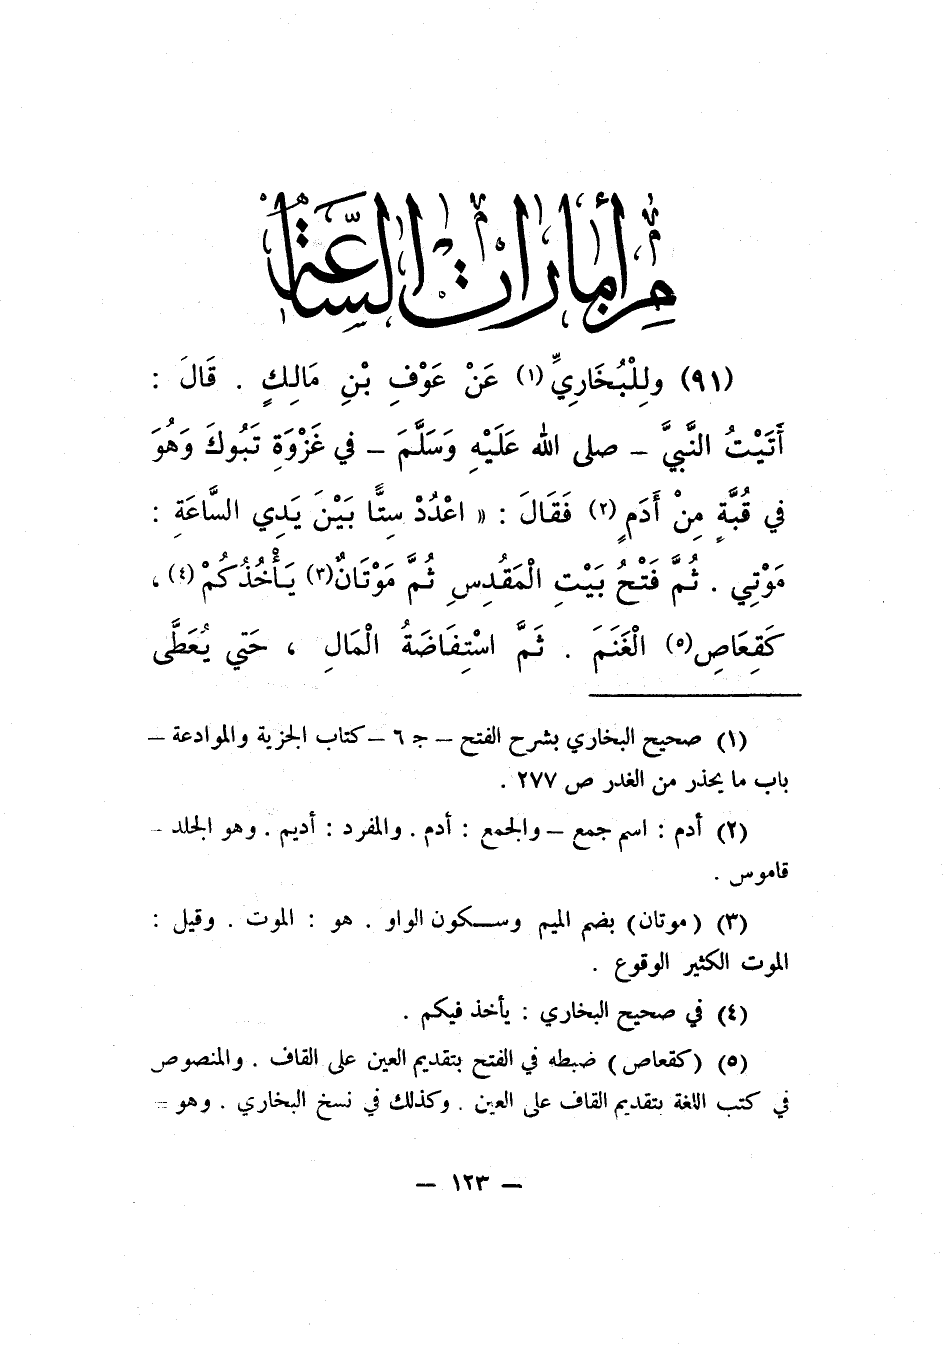 من أمارات الساعة
(٩١) ولِلْبُخَارِيِّ (١) عَنْ عَوْفِ بْنِ مَالِكٍ . قَالَ :
أَتَيْتُ النَّبيَّ – صلى الله عَلَيْهِ وَسَلَّمَ – في غَزْوَةِ تَبُوكَ وَهُوَ
في قُبَّةٍ مِنْ أَدَمٍ (٢) فَقَالَ : « اعْدُدْ سِتًّا بَيْنَ يَدِي السَّاعَةِ :
مَوْتِي . ثُمَّ فَتْحُ بَيْتِ الْمَقْدِسِ ثُمَّ مَوْتَانٌ (٣) يَأْخُذُكُمْ (٤) ،
كَقِعَاصِ (٥) الْغَنَمَ . ثَمَّ اسْتِفَاضَةُ الْمَالِ ، حَتي يُعَطَّى
(١) صحيح البخاري بشرح الفتح – ج ٦ – كتاب الجزية والموادعة –
باب ما يحذر من الغدر ص ٢٧٧ .
(٢) أدم : اسم جمع – والجمع : أدم . والمفرد : أديم . وهو الجلد –
قاموس .
(٣) ( موتان ) بضم الميم وسكون الواو . هو : الموت . وقيل :
الموت الكثير الوقوع .
(٤) في صحيح البخاري : يأخذ فيكم .
(٥) ( كقعاص ) ضبطه في الفتح بتقديم العين على القاف . والمنصوص
في كتب اللغة بتقديم القاف على العين . وكذلك في نسخ البخاري . وهو =
– ١٢٣ –